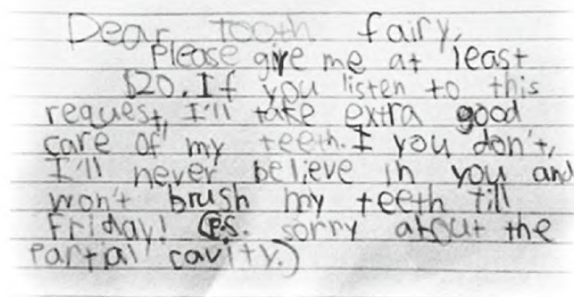 Dear tooth fairy,
Please give me at least
$20. If you listen to this
request, I'll take extra good
care of my teeth. I you don't,
I'll never believe in you and
won't brush my teeth till
Friday! (P.S. sorry about the
Partial cavity.)